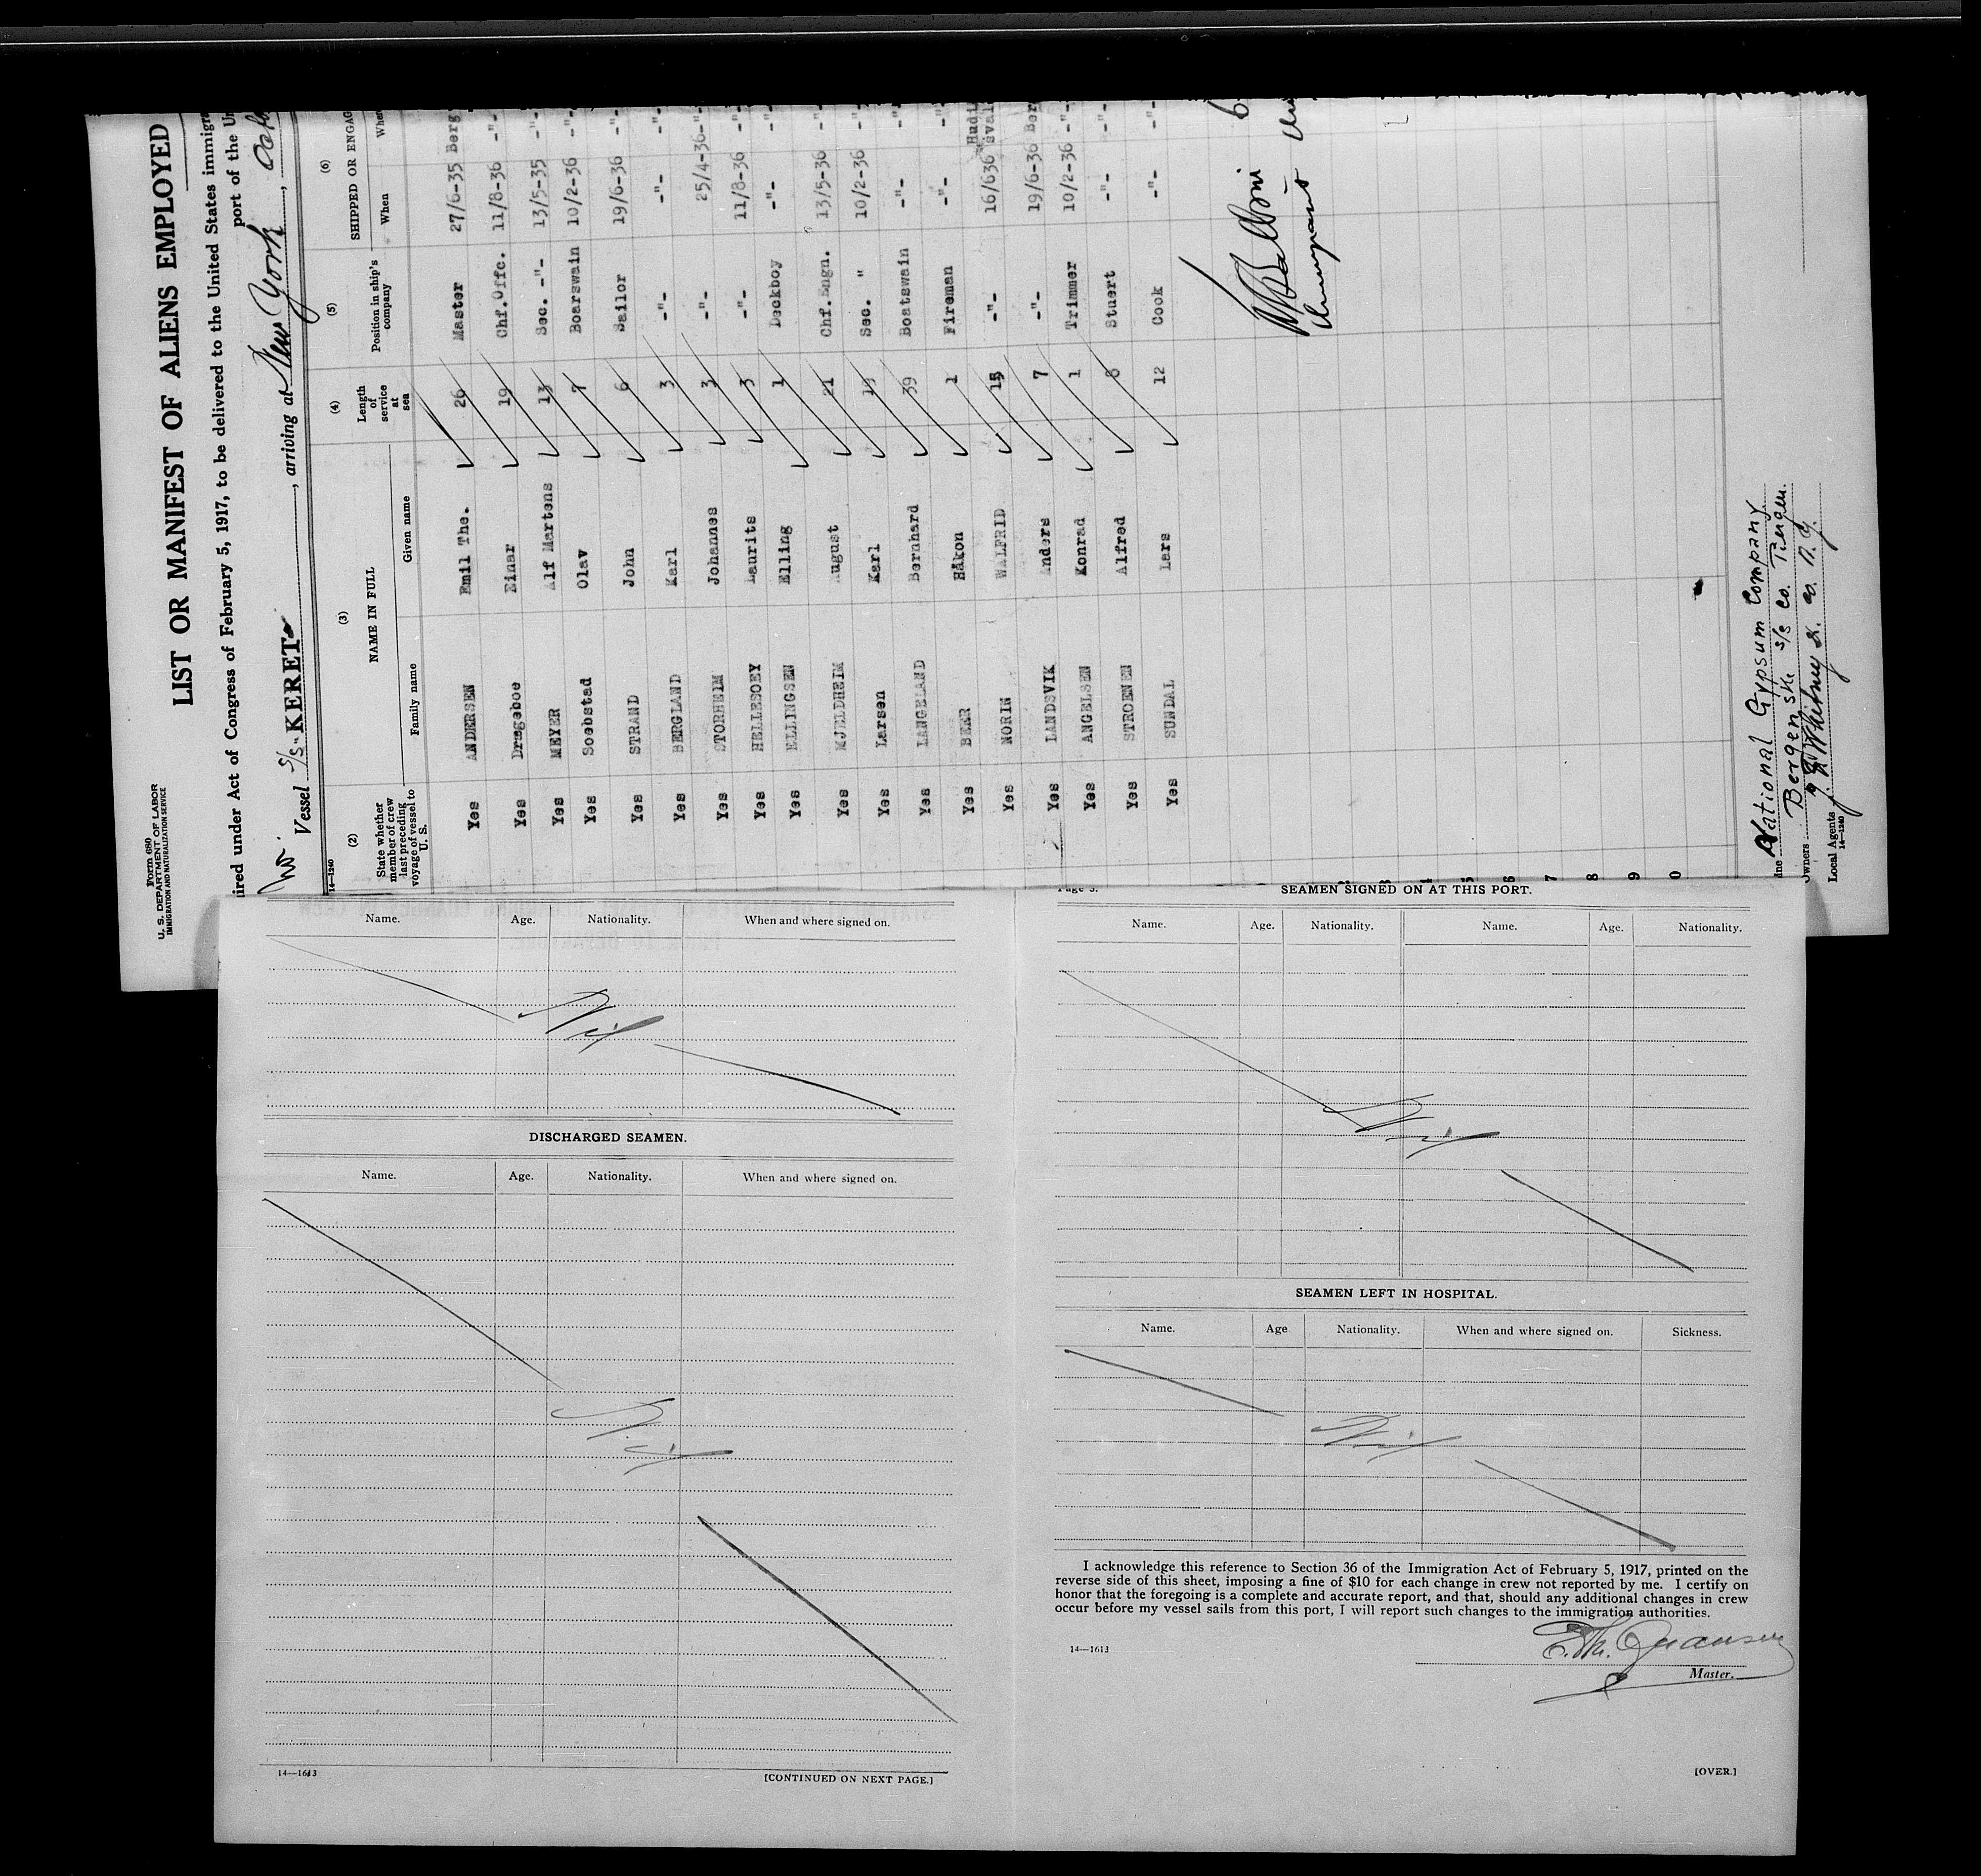 Form 680
U. S. DEPARTMENT OF LABOR
IMMIGRATION AND NATURALIZATION SERVICE
LIST OR MANIFEST OF ALIENS EMPLOYED
ired under Act of Congress of February 5, 1917, to be delivered to the United States immigra
port of the Un
Vessel S/S "KERET" , arriving at New York ,
14—1240
(2) (3) (4) (5) (6)
State whether member of crew last preceding voyage of vessel to U. S. NAME IN FULL Length of service at sea Position in ship's company SHIPPED OR ENGAG
Family name Given name When Whe
Yes ANDERSEN Emil The. 26 Master 27/6-35 Berg
Yes Drageboe Einar 19 Chf.Offc. 11/8-36 -"-
Yes MEYER Alf Martens 13 Sec. -"- 13/5-35 -"-
Yes Soebstad Olav 7 Boarswain 10/2-36 -"-
Yes STRAND John 6 Sailor 19/6-36 -"-
Yes BERGLAND Karl 3 -"- -"- -"-
Yes STORHEIM Johannes 3 -"- 25/4-36 -"-
Yes HELLESOEY Laurits 3 -"- 11/8-36 -"-
Yes ELLINGSEN Elling 1 Deckboy -"- -"-
Yes MJELDHEIM August 21 Chf.Engn. 13/5-36 -"-
Yes Larsen Karl Sec. " 10/2-36 -"-
Yes LANGELAND Bernhard 39 Boatswain -"- -"-
Yes BEER Håkon 1 Fireman -"- -"-
Yes NORIN WALFRID 15 -"- 16/636 Hudi sval
Yes LANDSVIK Anders 7 -"- 19/6-36 Ber
Yes ANGELSEN Konrad 1 Trimmer 10/2-36 -"-
Yes STROENEN Alfred 8 Stuert -"- -"-
Yes SUNDAL Lars 12 Cook -"- -"-
7
8
9
0
ine National Gypsum Company
Owners Bergenske S/S Co.
Local Agents J. H. Whitney & Co. N.Y.
14—1240
Name. Age. Nationality. When and where signed on.
Nil
DISCHARGED SEAMEN.
Name. Age. Nationality. When and where signed on.
Nil
14—1613
[CONTINUED ON NEXT PAGE.]
Page 3.
SEAMEN SIGNED ON AT THIS PORT.
Name. Age. Nationality. Name. Age. Nationality.
Nil
SEAMEN LEFT IN HOSPITAL.
Name. Age Nationality. When and where signed on. Sickness.
Nil
I acknowledge this reference to Section 36 of the Immigration Act of February 5, 1917, printed on the
reverse side of this sheet, imposing a fine of $10 for each change in crew not reported by me. I certify on
honor that the foregoing is a complete and accurate report, and that, should any additional changes in crew
occur before my vessel sails from this port, I will report such changes to the immigration authorities.
14—1613
E.Th.
Master.
[OVER.]